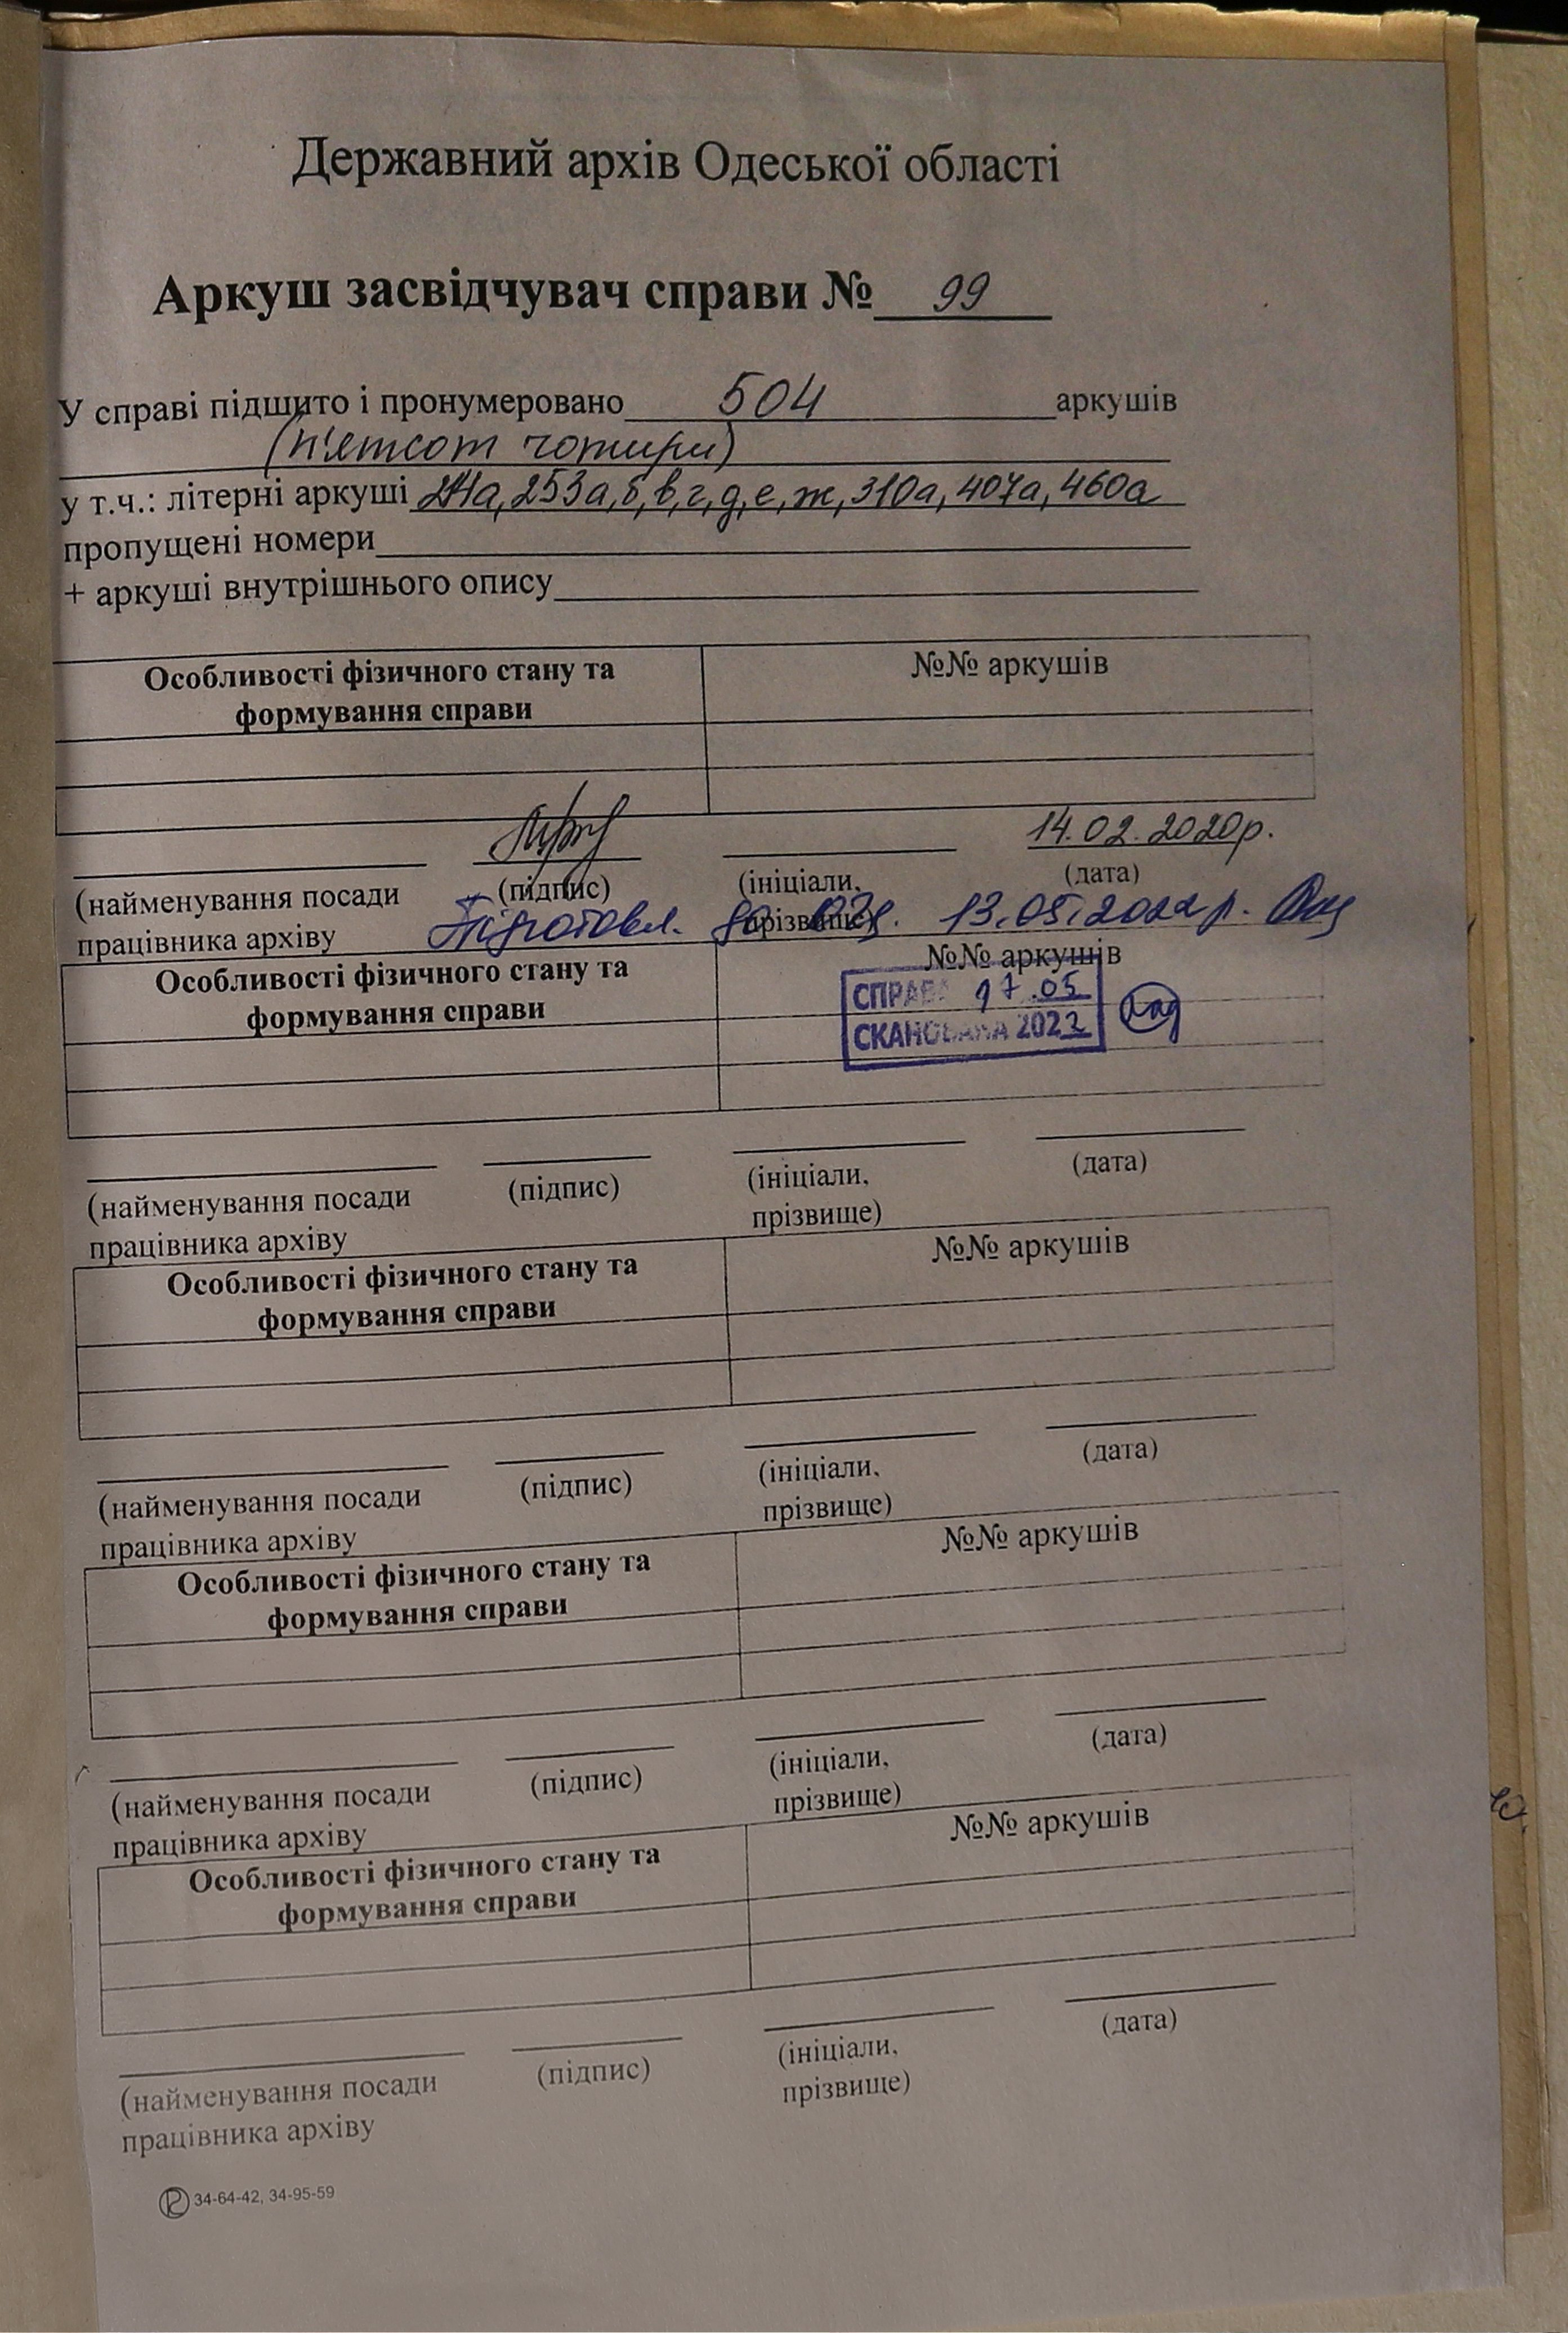 Державний архів Одеської області
Аркуш засвідчувач справи № 99
У справі підшито і пронумеровано 504 аркушів
(п'ятсот чотири)
у т.ч.: літерні аркуші 253а, б, в, г, д, е, ж, 310а, 407а, 460а
пропущені номери
+ аркуші внутрішнього опису
Особливості фізичного стану та №№ аркушів
формування справи
14.02.2020р.
(найменування посади (підпис) (ініціали, (дата)
працівника архіву прізвище)
Підготовл. до 13.05.2022р.
Особливості фізичного стану та №№ аркушів
формування справи
СПРАВА 17.05
СКАНОВАНА 2022
(найменування посади (підпис) (ініціали, (дата)
працівника архіву прізвище)
Особливості фізичного стану та №№ аркушів
формування справи
(найменування посади (підпис) (ініціали, (дата)
працівника архіву прізвище)
Особливості фізичного стану та №№ аркушів
формування справи
(найменування посади (підпис) (ініціали, (дата)
працівника архіву прізвище)
Особливості фізичного стану та №№ аркушів
формування справи
(найменування посади (підпис) (ініціали, (дата)
працівника архіву прізвище)
34-64-42, 34-95-59